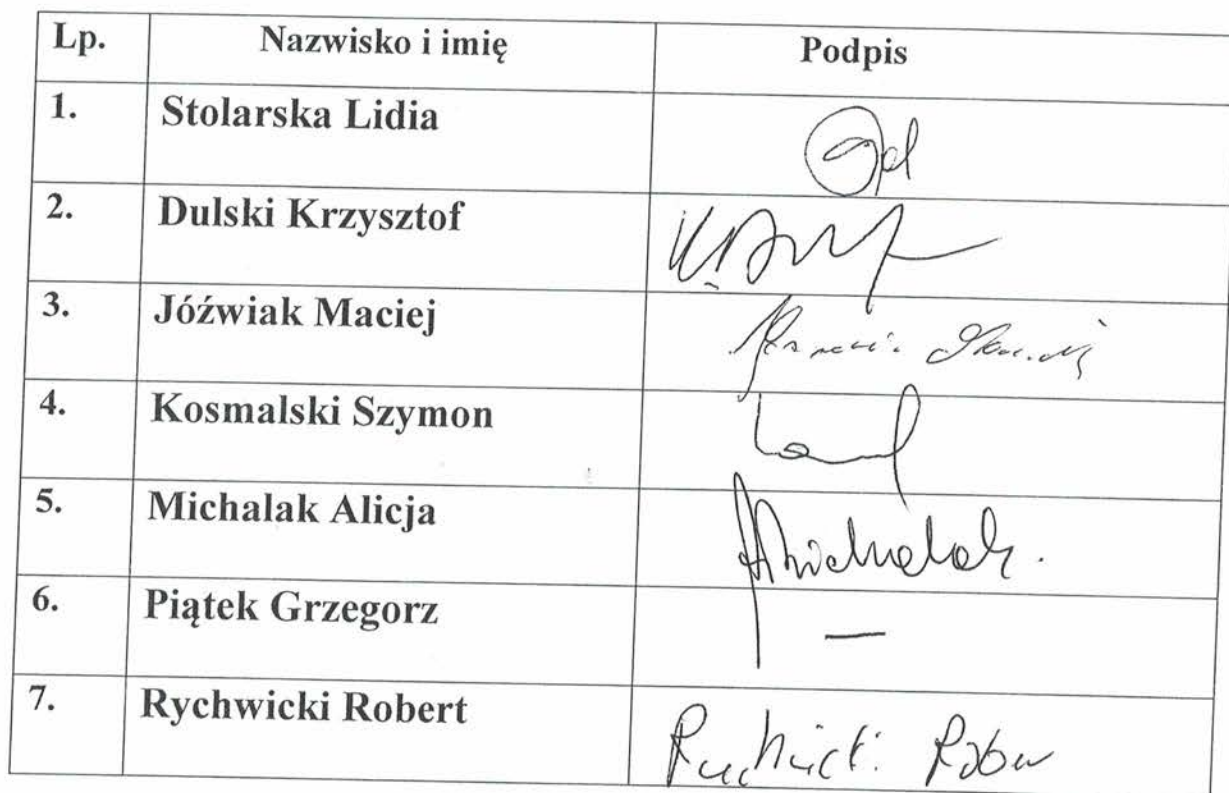 Lp. Nazwisko i imię Podpis
1. Stolarska Lidia
2. Dulski Krzysztof
3. Jóźwiak Maciej
4. Kosmalski Szymon
5. Michalak Alicja AMichalak.
6. Piątek Grzegorz —
7. Rychwicki Robert